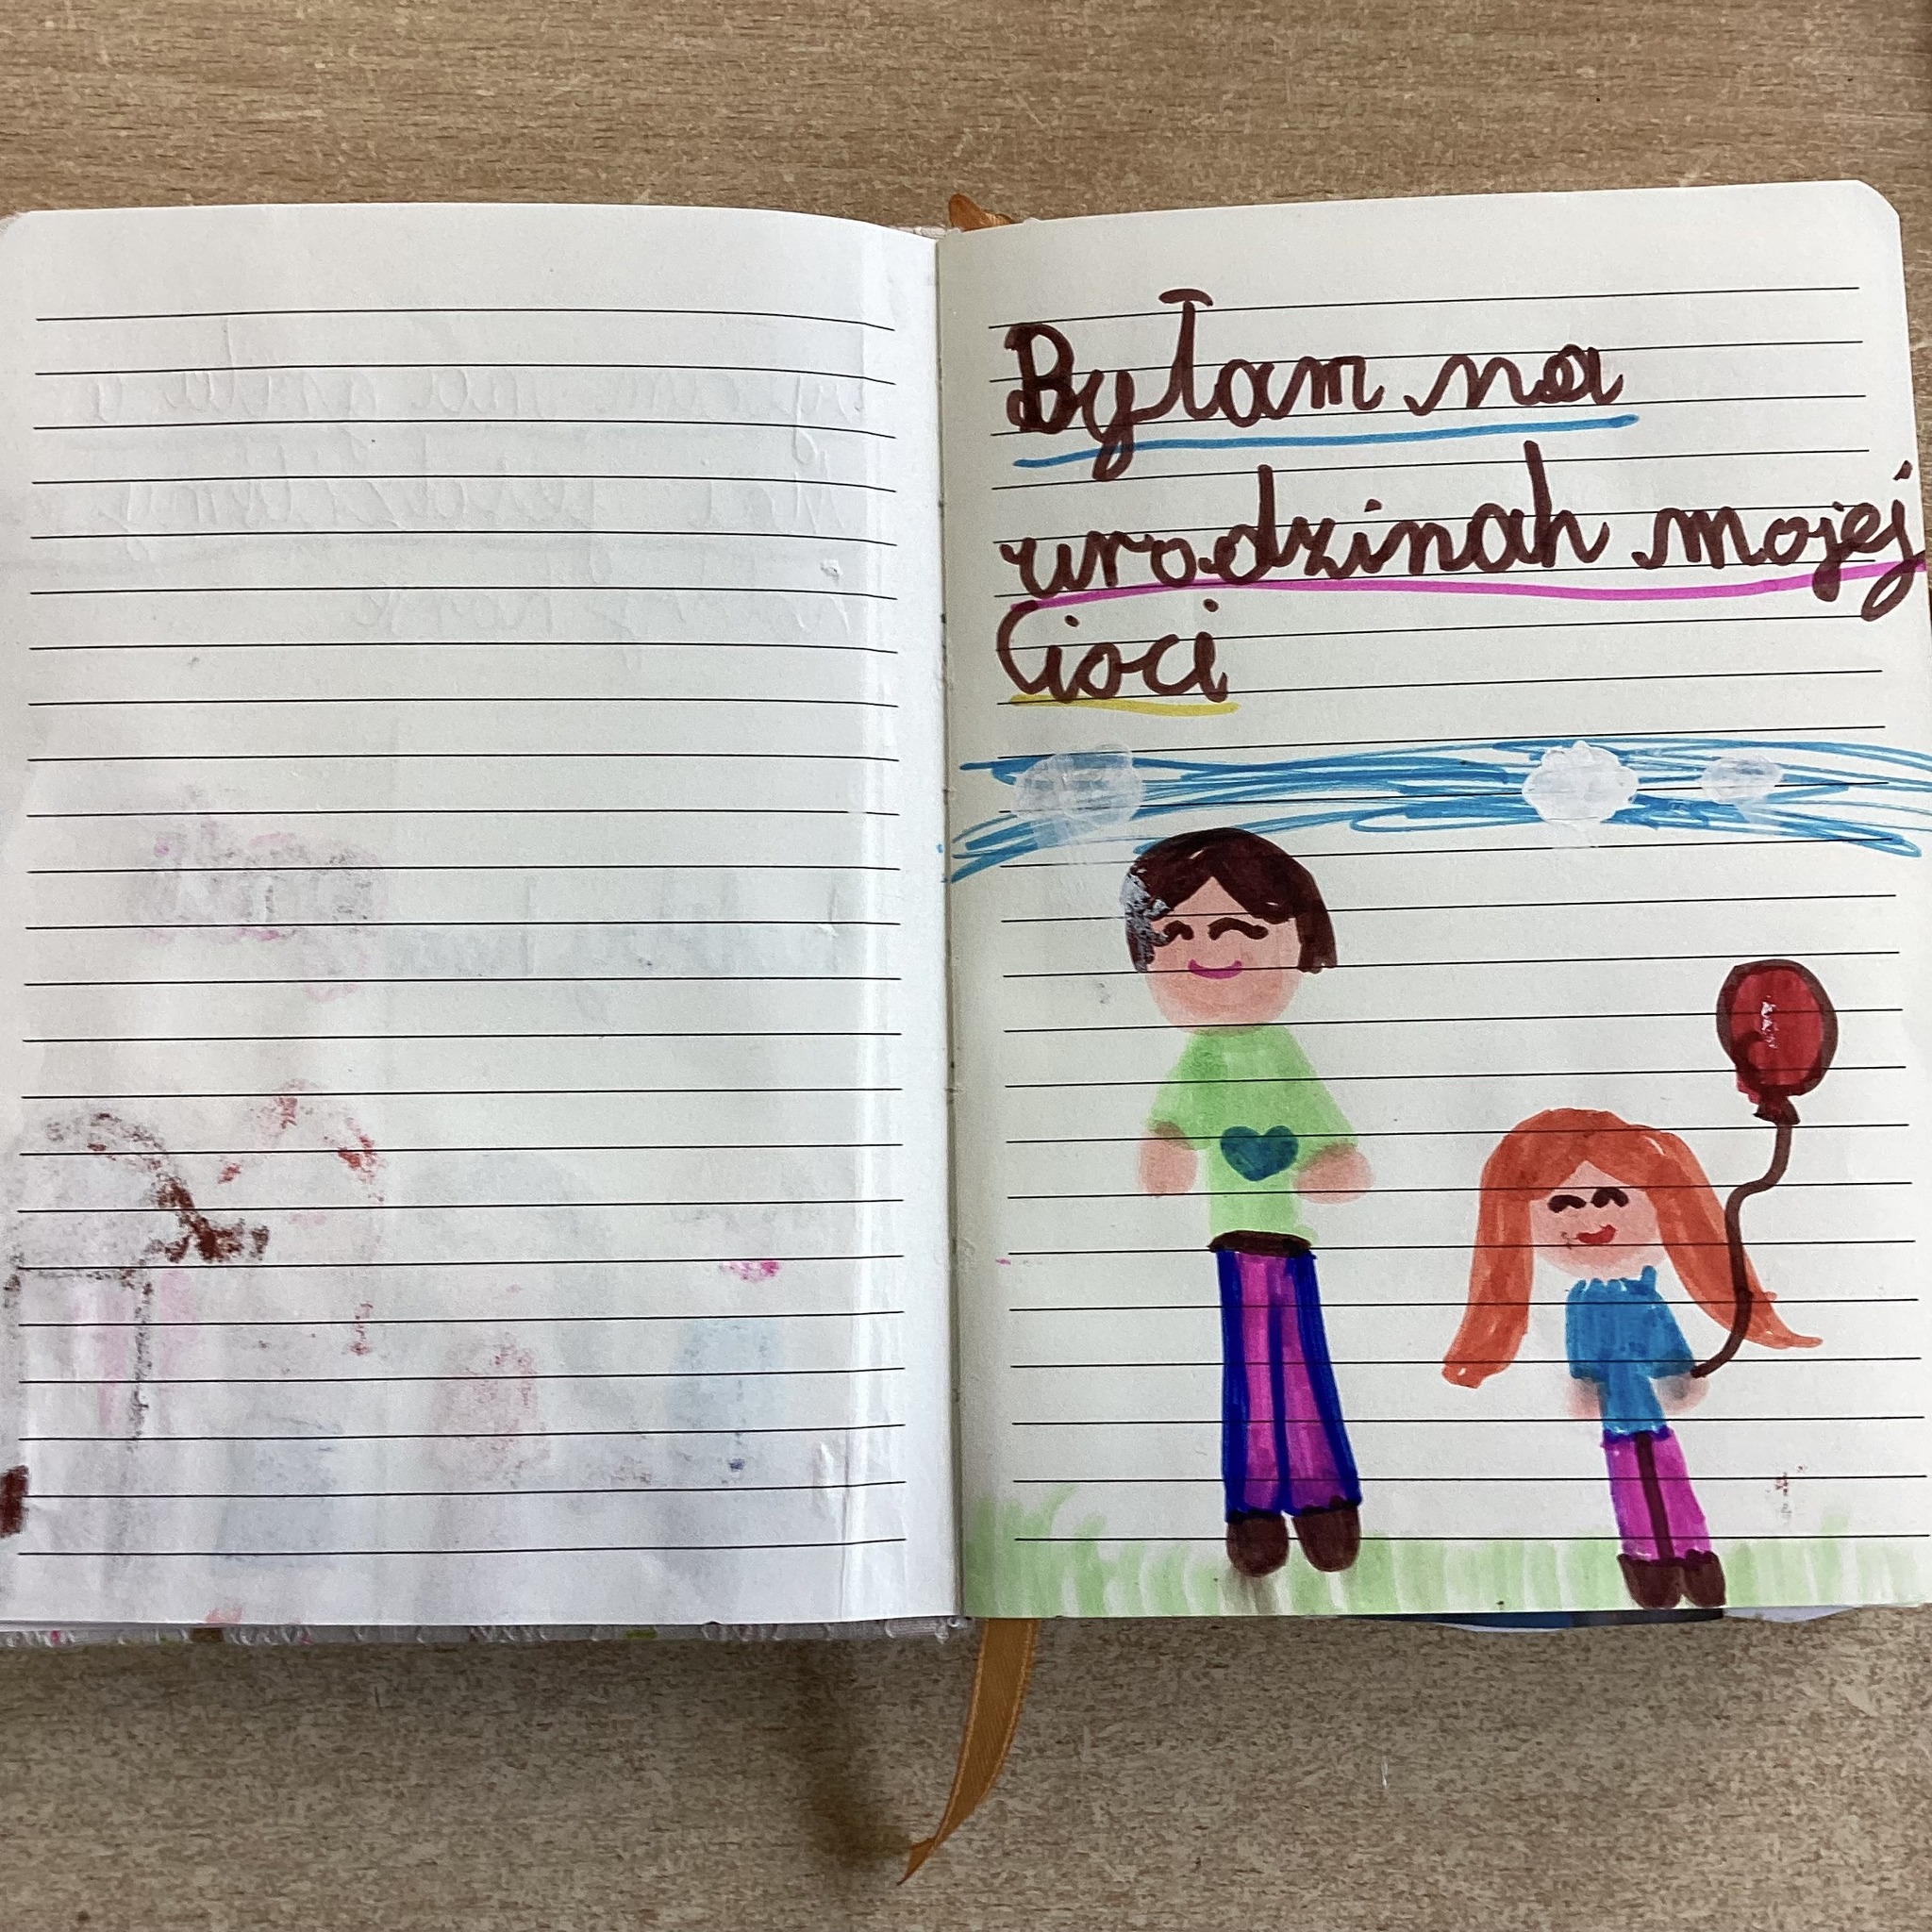 Byłam na
urodzinah mojej
Cioci